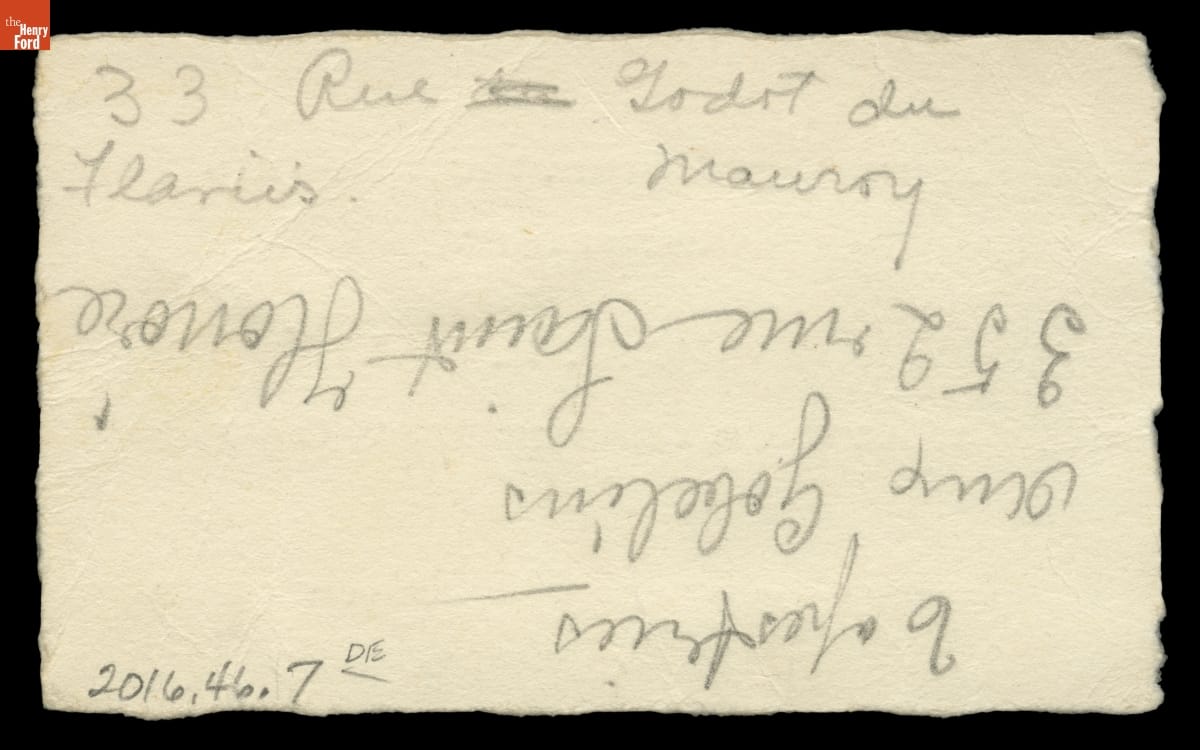 the
Henry
Ford
33 Rue Godot du
Mauroy
Tapestries
aux Gobelins
352 rue Saint Honoré
2016.46.7 DE